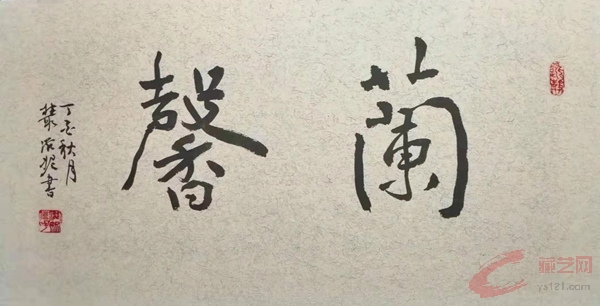 蘭馨
丁亥秋月
叢后妮書
藏艺网
ys121.com